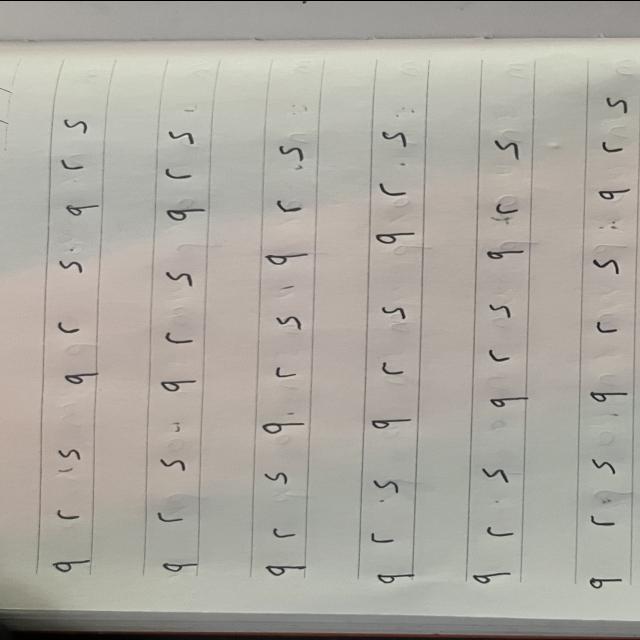 q r s q r s q r s
q r s q r s q r s
q r s q r s q r s
q r s q r s q r s
q r s q r s q r s
q r s q r s q r s